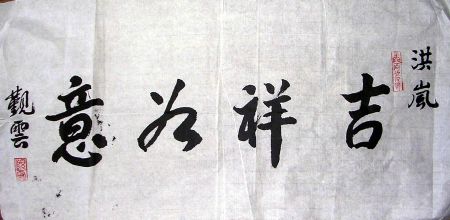 洪嵐
吉祥如意
觀雲